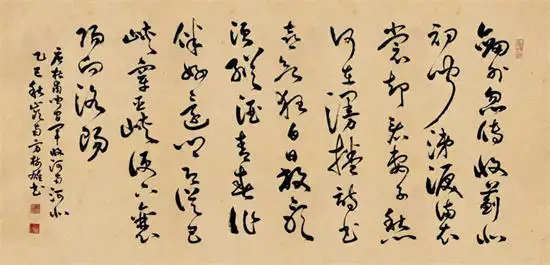 劍外忽傳收薊北
初聞涕淚滿衣
裳却看妻子愁
何在漫捲詩書
喜欲狂白日放歌
須縱酒青春作
伴好還鄉即從巴
峽穿巫峽便下襄
陽向洛陽
唐杜甫聞官軍收河南河北
乙巳秋嶺南方雄書